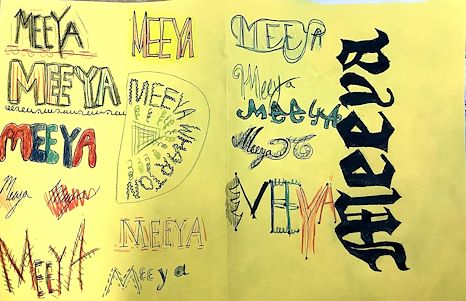 MEEYA
MEEYA
MEEYA
MEEYA
MEEYA
Meeya
MEEYA
MEEYA
Meeya
MEEYA
Meeya
MEEYA
Meeya
MEEYA
Meeya